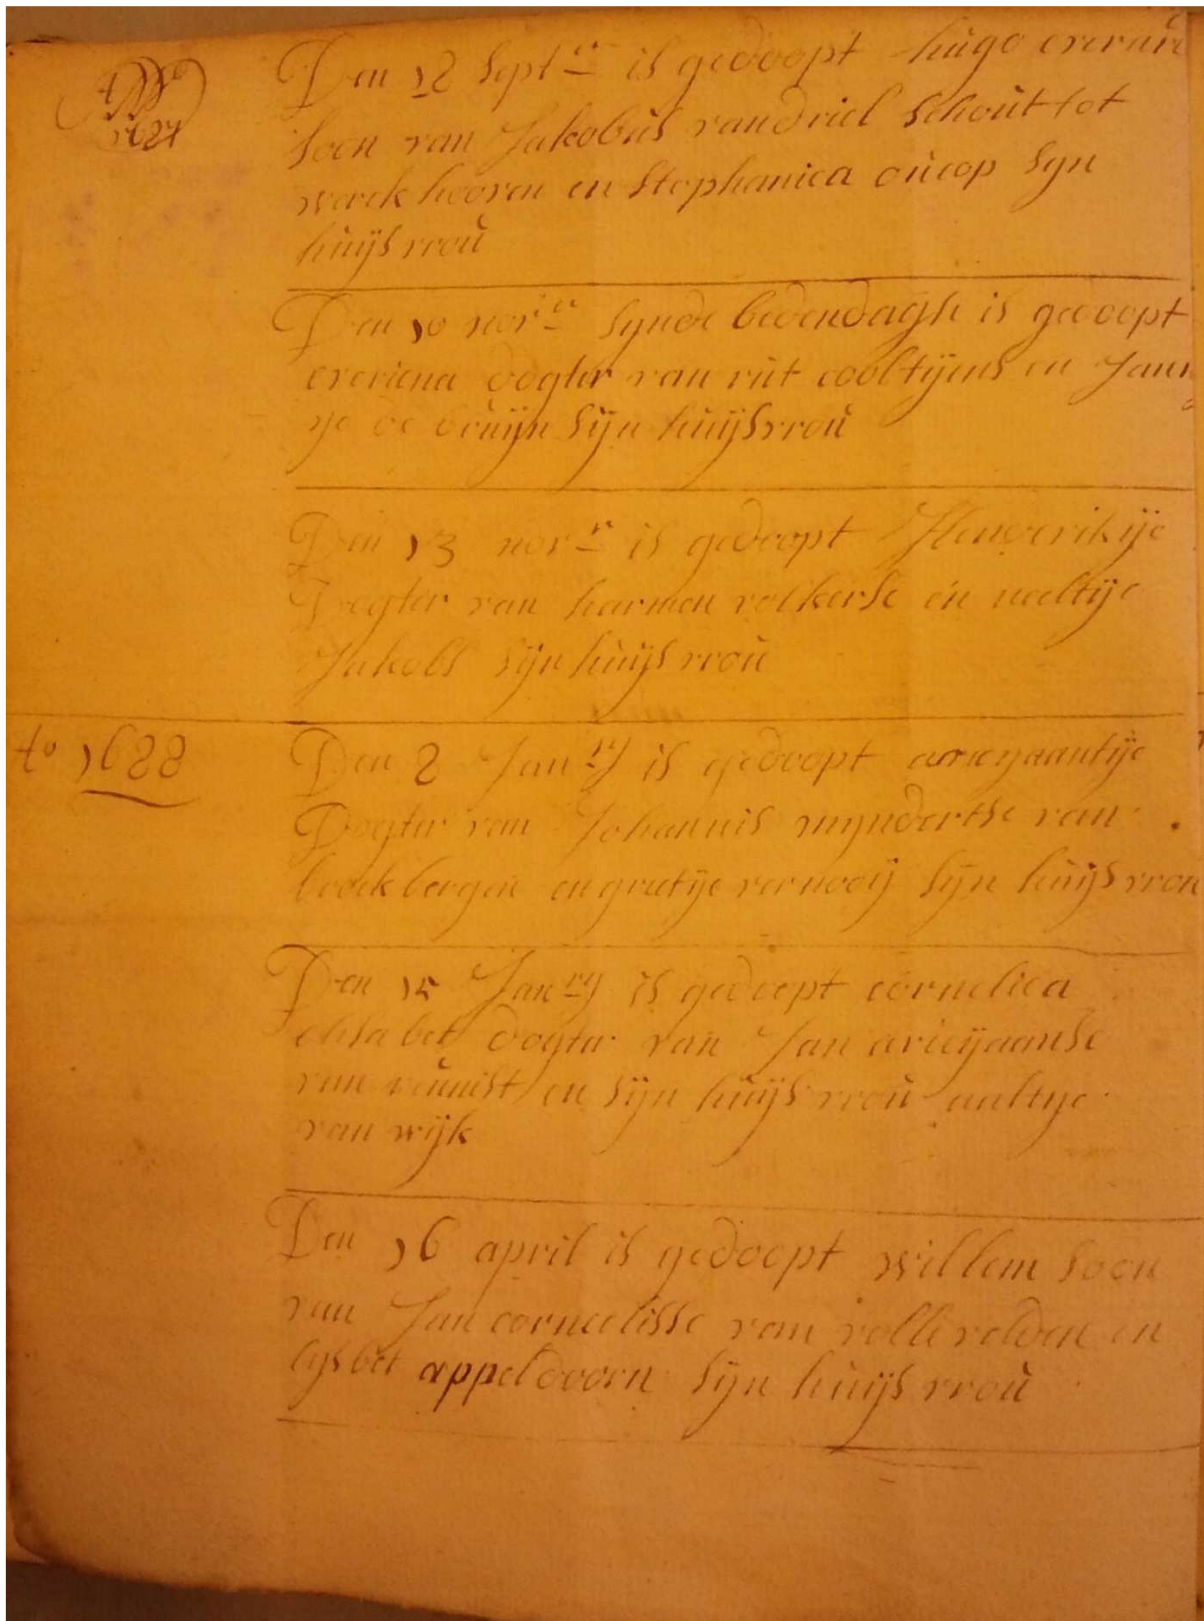 Ao
1687
Den 18 Septr is gedoopt hugo everard
Soon van Jakobus van driel Schout tot
werckhooven en Stephanica oucop Syn
huijsvrou
Den 10 novr Synde bedendagh is gedoopt
everiena dogter van rut cooltijens en Jann
tje de bruijn Sijn huijsvrou
Den 13 novr is gedoopt Henderikije
Dogter van harmen volkerse en neeltije
Jakobs Sijn huijsvrou
Ao 1688
Den 8 Janry is gedoopt arieyaantije
Dogter van Johannis myndertse van
broekbergen en grietije vernooij Sijn huijsvrou
Den 15 Janry is gedoopt cornelica
elisabet dogter van Jan arieijaanse
van en Sijn huijsvrou aaltije
van wijk
Den 16 april is gedoopt willem Soon
van Jan corneelisse van rollevelden en
lijsbet appeldoorn Sijn huijsvrou